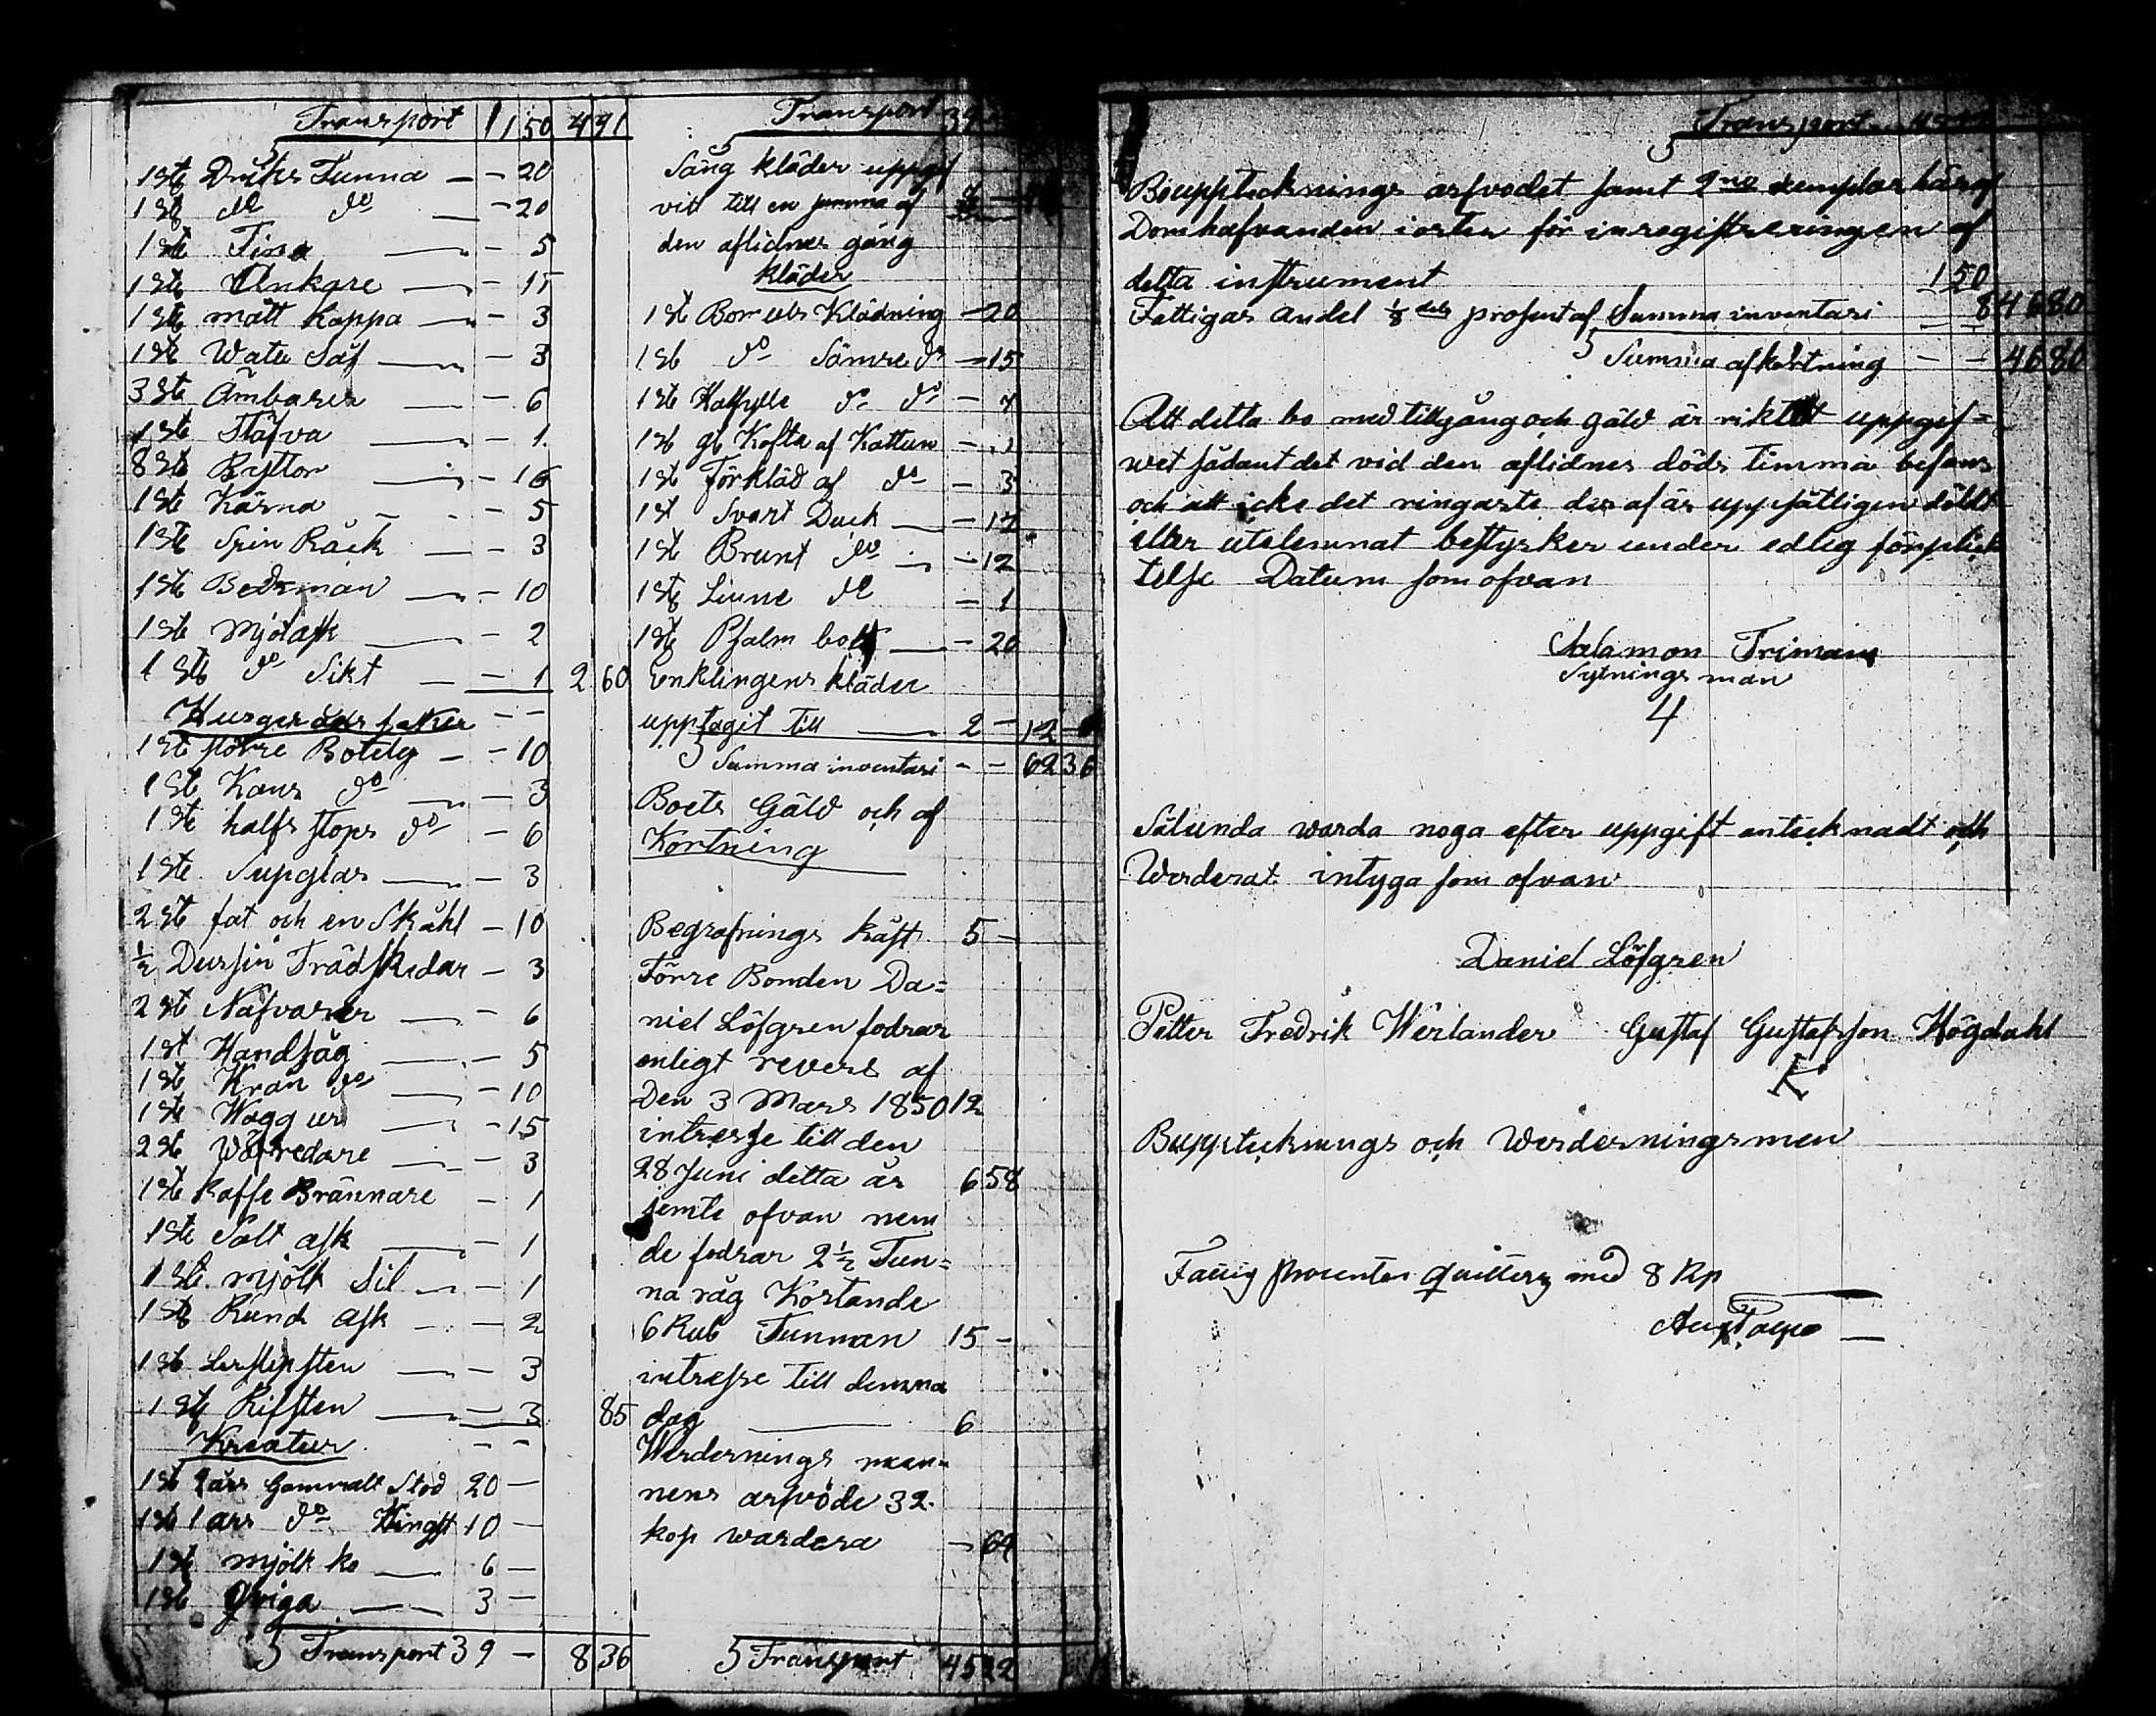 Transport 1 150 491
1 st Dricks Tunna — - 20
1 st do do — - 20
1 st Tina — - 5
1 st Ankare — - 15
1 st mått Kappa — - 3
1 st Watu Såf — - 3
3 st Ämbarer — - 6
1 st Stäfva — - 1
8 st Byttor — - 16
1 st Kärna - - 5
1 st Spin Råck — - 3
1 st Beckman — - 10
1 st Mjölask — - 2
1 st do Sikt — - 1 2 60
Husgeråds saker - -
1 st större Botelg — - 10
1 st Kans do — - 3
1 st halfs stops do - 6
1 st Supglas — - 3
2 st fat och en Skåhl - 10
½ Dussin Trädskedar - 3
2 st Näfvarer — - 6
1 st Handsåg — - 5
1 st Kran do — - 10
1 st Wägg ur — - 15
2 st Wäfredare — - 3
1 st Kaffe Brännare - 1
1 st Salt ask — - 1
1 st mjölk Sil — - 1
1 st Rund ask — - 2
1 st Lerslipsten — - 3
1 st Rifsten — - 3 85
Kreatur - -
1 st 9 års Gammalt Stod 20 —
1 st 1 års do Hingst 10 —
1 st mjölk ko — 6 —
1 st Qviga — 3 —
Transport 39 — 8 36
Transport 39
Säng kläder uppgif
vit till en summa af
den aflidnes gång
kläder
1 st Bomuls Klädning - 20
1 st do Sämre do - 15
1 st Halfylle do do - 7
1 st gl Kofta af Kattun -
1 st Förkläd af do - 3
1 st Svart Duck — - 17
1 st Brunt do - 12
1 st Linne do - 1
1 st Psalm bok — - 20
Enklingens kläder
upptagit till — 2 - 12 -
Summa inventari - - 62 36
Boets Gäld och af
Kortning
Begrafnings kåst 5 -
Förre Bonden Da=
niel Löfgren fodrar
enligt revers af
Den 3 Mars 1850 12
intresse till den
28 Juni detta år 6 58
jemte ofvan nem
de fodrar 2½ Tun=
na råg Kostande
6 Rub Tunnan 15 -
intresse till denna
dag — 6
Werdernings män=
nens arfvode 32
kop wardera - 64
Transport 45 22
Transport 45 22
Bouppteknings arfvodet samt 2no exemplar häraf
Domhafvanden iarter för inregistreringen af
detta instrument 1 50
Fattigas andel ⅛ dels prosent af Summa inventari 8 46 80
Summa afkortning - - 46 80
Att detta bo med tillgång och gäld är riktit uppgif=
wet sådant det vid den aflidnes döds timma befans
och att icke det ringaste der af är uppsåtligen döldt
eller utelemnat bestyrker under edlig förplick
telse Datum som ofvan
Salamon Friman
Sytnings man
4
Sålunda warda noga efter uppgift antecknadt och
Warderat intyga som ofvan
Daniel Löfgren
Petter Fredrik Werlander Gustaf Gustafsson Högdahl
K
Bupptecknings och Werderningsmen
Fattig Procenten quitterz med 8 Kp